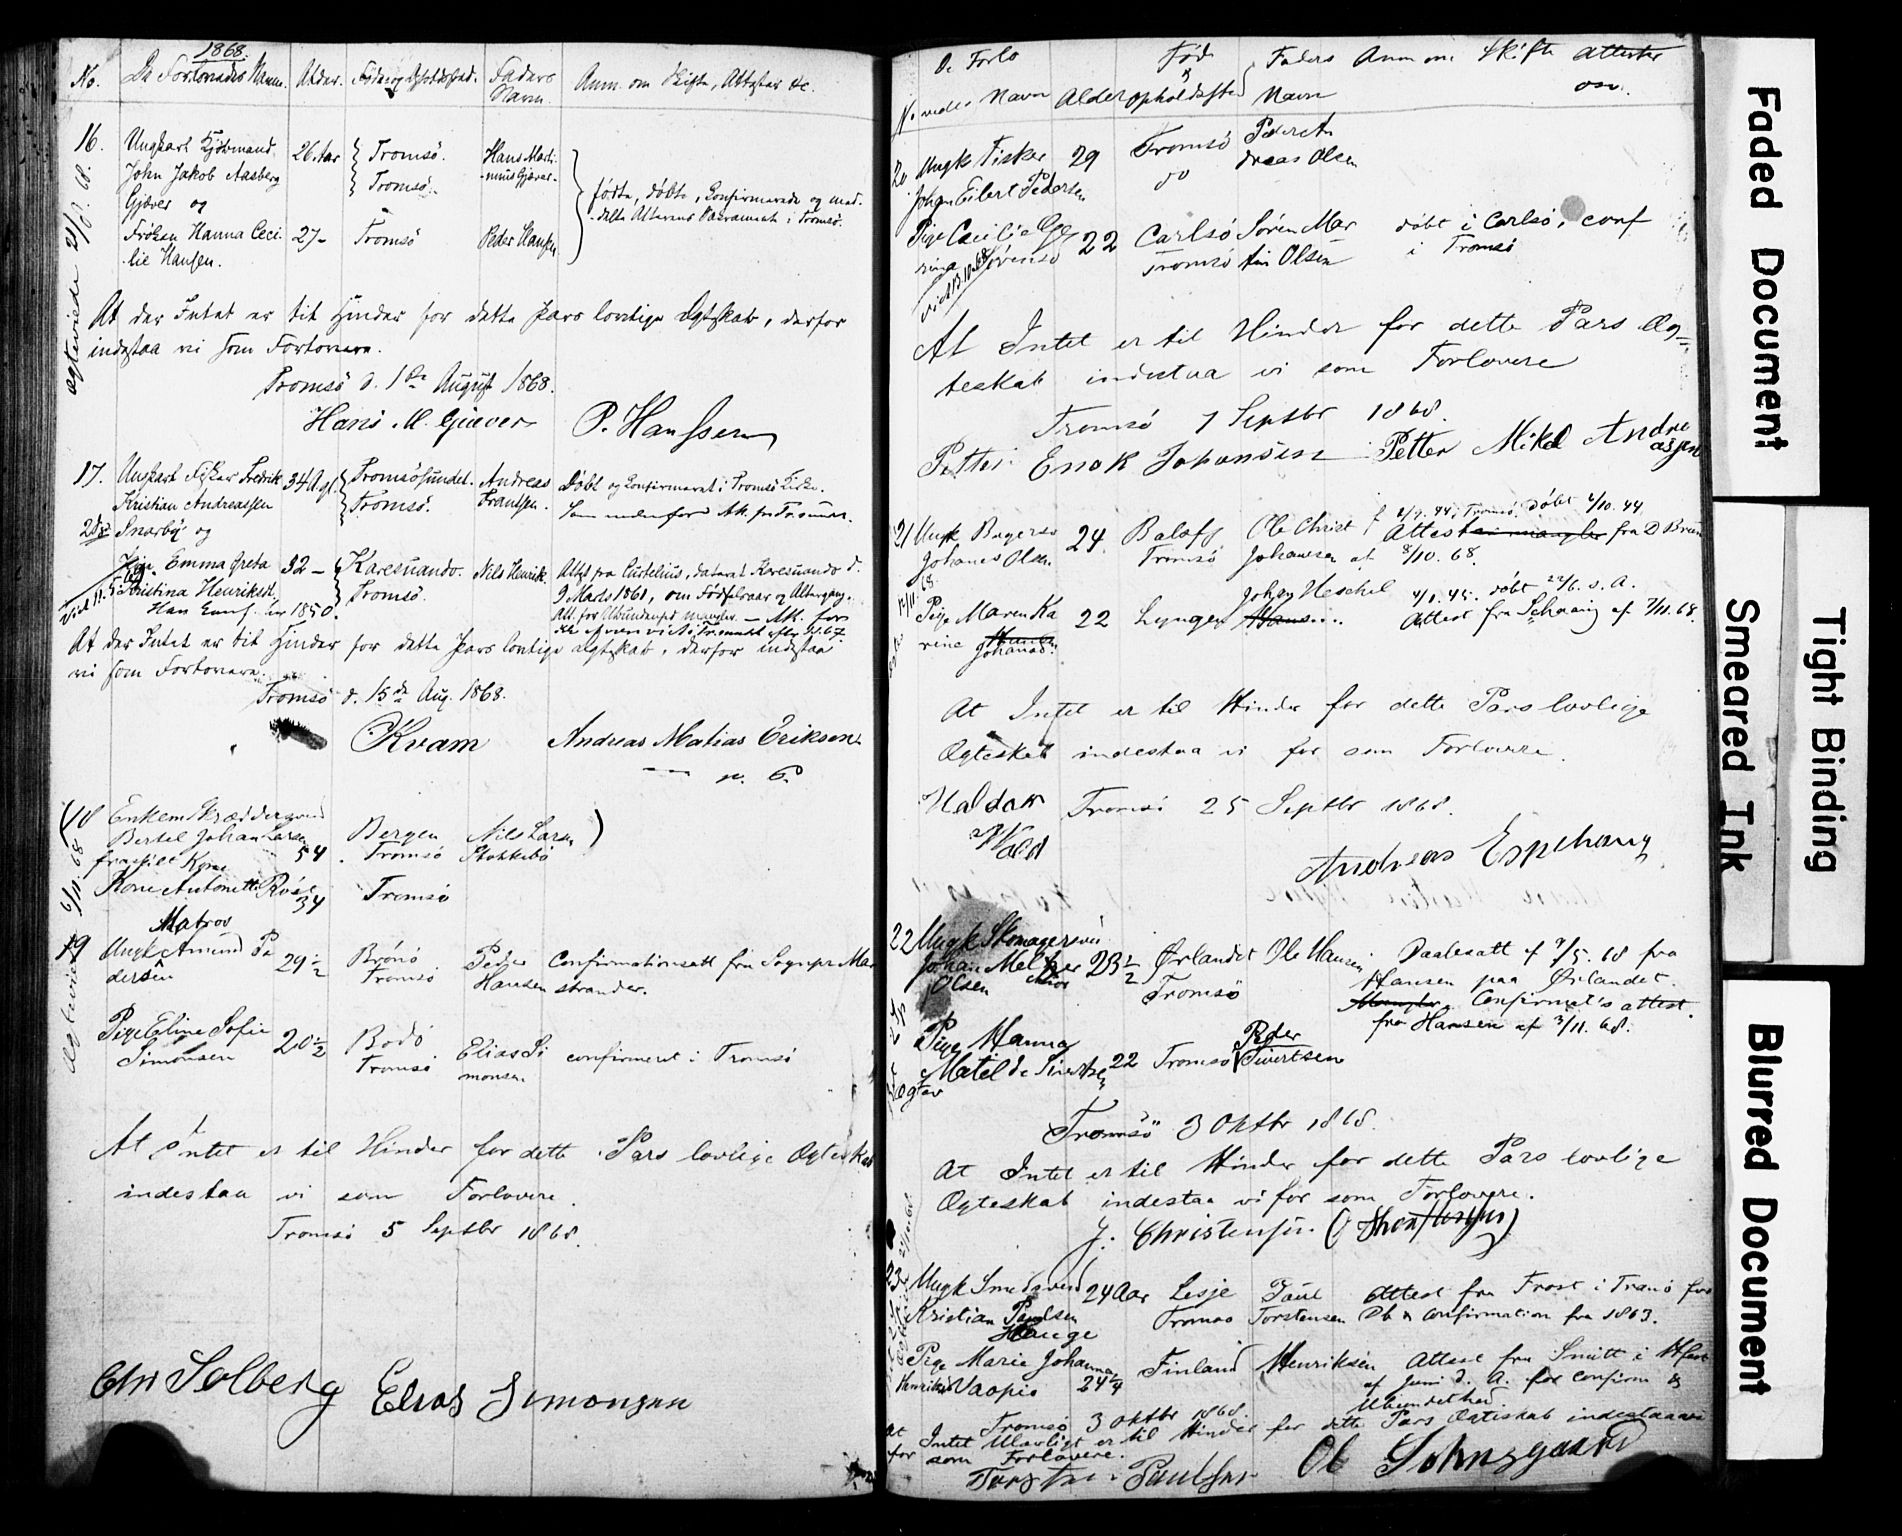 1868.
No. De Forlovedes Navne. Alder. Føde og Opholdssted. Faders Navn. Anm. om Skifte, Attester &c.
16. Ungkarl Kjøbmand 26 Aar Tromsø. Hans Marti-
John Jakob Aasberg Tromsø. -nius Gjæver.
Gjæver og
fødte, døbte, Confirmerede og med-
delte Alterens Sacrament i Tromsø.
Frøken Hanna Ceci- 27 - Tromsø Peder Hansen
lie Hansen.
Ægteviede 21/8. 68.
At der Intet er til Hinder for dette Pars lovlige Ægteskab, derfor
indestaa vi som Forlovere.
Tromsø d. 1ste August 1868.
Hans M. Giæver P. Hanssen
17. Ungkarl Fisker Fredrik 34 Tromsøsundet. Andreas Døbt og Confirmeret i Tromsø Kirke.
Kristian Andreassen Tromsø. Frantsen.
Snarby og
Pige Emma Greta 32 - Karesuando. Nils Henrik Attest fra Karesuando d.
Kristina Henriksd. Tromsø. 9 Marts 1861, om Fødselsaar og Altergang.
1850.
At der Intet er til Hinder for dette Pars lovlige Ægteskab, derfor indestaa
vi som Forlovere.
Tromsø d. 15de Aug. 1868.
Kvam Andreas Matias Eriksen
m. P.
18 Enkem Skræddersvend
Bertel Johan Larsen 54 Bergen Nils Larsen
fraskilt Kone Tromsø Stokkebø
Antonette 34 Tromsø
6/11. 68
Matros
19 Ungk Amund Pe 29 1/2 Brønø Peder Confirmationsatt fra Sognepr Mar
dersen Tromsø Hansen strander.
Pige Eline Sofie 20 1/2 Bodø Elias Si confirmeret i Tromsø
Simonsen Tromsø monsen
At Intet er til Hinder for dette Pars lovlige Ægteskab
indestaa vi som Forlovere.
Tromsø 5 Septbr 1868.
Chr Solberg Elias Simonsen
De Forlo Fød Faders Anm om Skifte attester
N. vedes Navn Alder opholdssted Navn osv.
20 Ungk Fisker 29 Tromsø Peder An
Johan Eilert Pedersen do dreas Olsen
Pige Cecilie 22 Carlsø Søren Mar døbt i Carlsø, conf
Sørensd Tromsø tin Olsen i Tromsø
viet 13.10.68
At Intet er til Hinder for dette Pars Æg=
teskab indestaa vi som Forlovere
Tromsø 7 Septbr 1868.
Petter Enok Johansen Petter Mikal Andre
assen
21 Ungk Bagersv 24 Balsfj Ole Christ f Tromsø, døbt 6/10. 44.
Johanes Olsen Tromsø Johansen Attest mangler fra D Brun
af 8/10. 68.
Pige Maren Ka 22 Lyngen Johan Heschel døbt 22/6. s. A.
rine Hansen Hansen Attest fra Schaanig af 7/11. 68.
Johanesd
At Intet er til Hinder for dette Pars lovlige
Ægteskab indestaa vi for som Forlovere.
Haldor Tromsø 25 Septbr 1868.
Wold
Andreas Espehaug
22 Ungk Skomagersve
Johan Melkior 23 1/2 Ørlandet Ole Hansen Daabsatt af 7/5. 68 fra
Olsen Tromsø Hansen paa Ørlandet.
Mangler Confirmat's attest.
fra Hansen af 3/11. 68.
Pige Hanna Peder
Matilde Sivertsen 22 Tromsø Sivertsen
Tromsø 3 Oktbr 1868.
At Intet er til Hinder for dette Pars lovlige
Ægteskab indestaa vi for som Forlovere.
J. Christensen
23 Ungk Smedsvend 24 Aar Lesje Paul Attest fra Frost i Tranø for
Kristian Paulsen Tromsø Torstensen Db & confirmation fra 1863.
Hauge
Pige Marie Johanna Finland Henriksen Attest fra Smitt i Hfest
Henriksd Vaapio 24 1/4 af Juni d. A. for confirm &
Ubundethed.
Tromsø 3 Oktbr 1868.
At Intet Ulovligt er til Hinder for dette Pars Ægteskab indestaaes
for som Forlovere.
Torsten Paulsen Ol Sohnsgaard
Faded Document
Tight Binding
Smeared Ink
Blurred Document